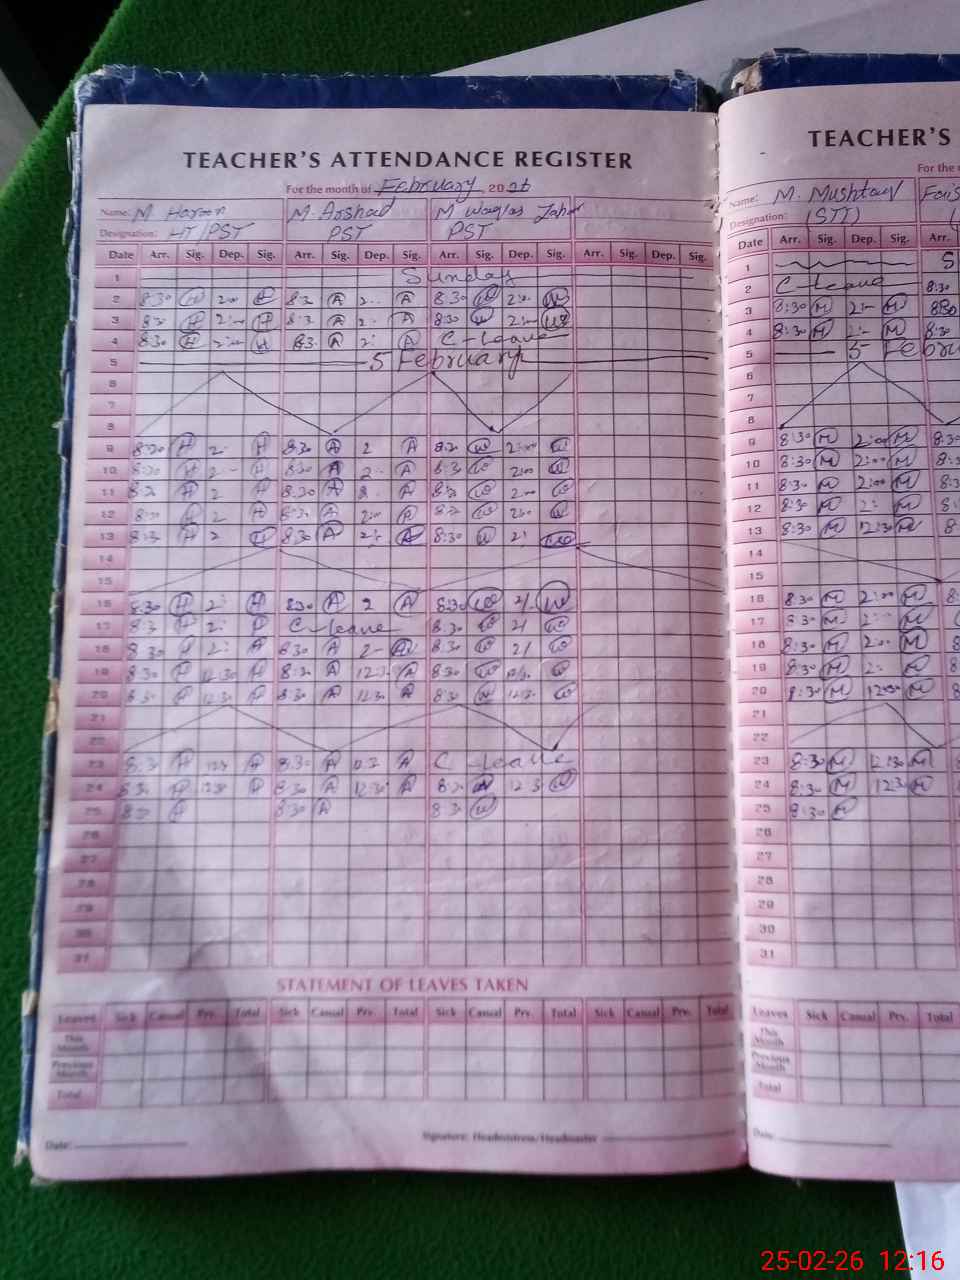 TEACHER'S ATTENDANCE REGISTER
For the month of February 2026
Name: M Haroon M. Arshad M Waqlas Zahoor
Designation: HT/PST PST PST
Date Arr. Sig. Dep. Sig. Arr. Sig. Dep. Sig. Arr. Sig. Dep. Sig. Arr. Sig. Dep. Sig.
1 Sunday
2 8:30 H 2:00 H 8:3 A 2 A 8:30 W 2:00 W
3 8:3 H 2:00 H 8:3 A 2 A 8:30 W 2:00 W
4 8:30 H 2:00 H 8:3 A 2 A C-leave
5 5 February
6
7
8
9 8:30 H 2 H 8:30 A 2 A 8:30 W 2:00 W
10 8:30 H 2 H 8:30 A 2 A 8:30 W 2:00 W
11 8:3 H 2 H 8:30 A 2 A 8:3 W 2:00 W
12 8:30 H 2 H 8:30 A 2:00 A 8:3 W 2:00 W
13 8:3 H 2 H 8:30 A 2 A 8:30 W 2 W
14
15
16 8:30 H 2 H 8:30 A 2 A 8:30 W 2/ W
17 8:3 H 2 C-leave 8:30 W 2/ W
18 8:30 H 2 A 8:30 A 2 A 8:30 W 2/ W
19 8:30 H 12:30 H 8:30 A 12:3 A 8:30 W W
20 8:30 H 12:30 H 8:30 A 12:30 A 8:30 W 12:3 W
21
22
23 8:3 H 12:3 8:30 A 12:3 A C-leave
24 8:30 H 12:30 8:30 A 12:30 A 8:30 W 12:3 W
25 8:30 H 8:30 A 8:30 W
26
27
28
29
30
31
STATEMENT OF LEAVES TAKEN
Leaves Sick Casual Prv. Total Sick Casual Prv. Total Sick Casual Prv. Total Sick Casual Prv. Total
This Month
Previous Month
Total
Date:
Signature: Headmistress/Headmaster
TEACHER'S
For the
Name: M. Mushtaq
Designation: (STT)
Date Arr. Sig. Dep. Sig. Arr.
1 S
2 C-leave 8:30
3 8:30 M 2:00 M 8:30
4 8:30 M 2:00 M 8:30
5 5 Febru
6
7
8
9 8:30 M 2:00 M 8:30
10 8:30 M 2:00 M 8:3
11 8:30 M 2:00 M 8:3
12 8:30 M 2: M 8:
13 8:30 M 12:30 M 8
14
15
16 8:30 M 2:00 M 8:
17 8:30 M 2:00 M
18 8:30 M 2:00 M 8
19 8:30 M 2: M 8
20 8:30 M 12:30 M 8
21
22
23 8:30 M 12:30 M 8
24 8:30 M 12:30 M 8
25 8:30 M
26
27
28
29
30
31
Leaves Sick Casual Prv. Total
This Month
Previous Month
Total
Date:
25-02-26 12:16